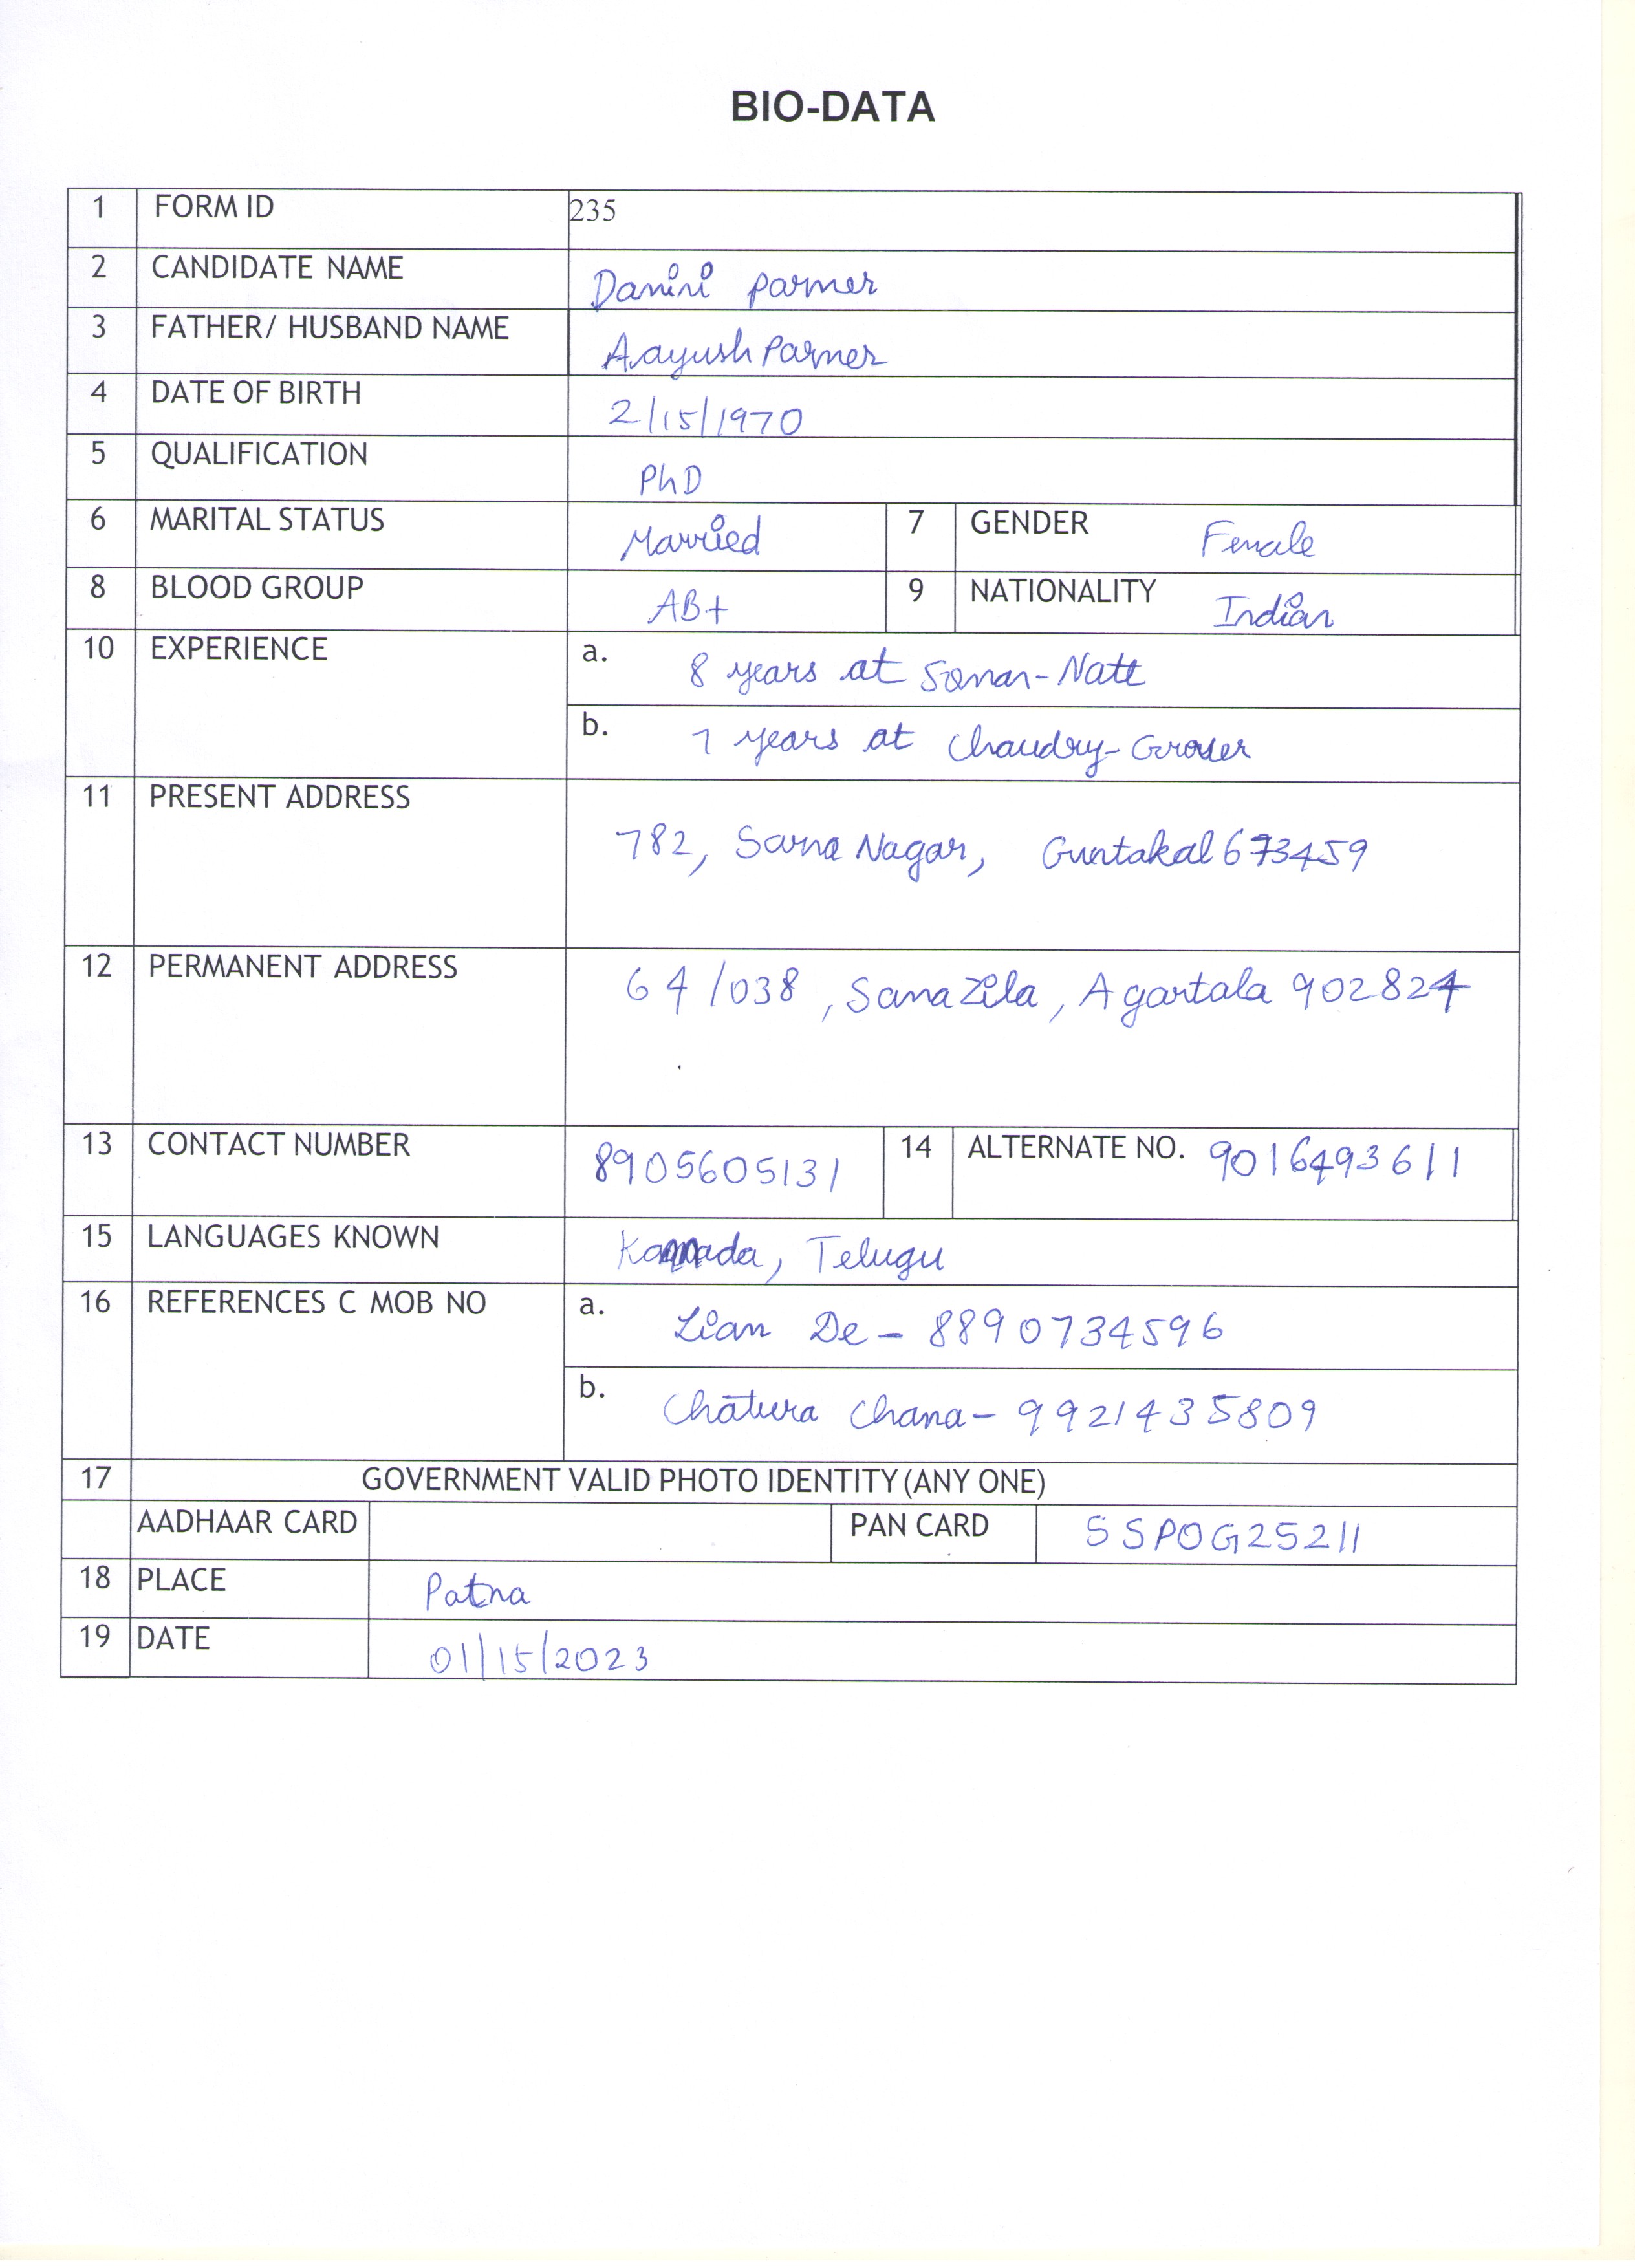 BIO-DATA
1 FORM ID 235
2 CANDIDATE NAME Damini Parmer
3 FATHER/ HUSBAND NAME Aayush Parmer
4 DATE OF BIRTH 2/15/1970
5 QUALIFICATION PhD
6 MARITAL STATUS Married 7 GENDER Female
8 BLOOD GROUP AB+ 9 NATIONALITY Indian
10 EXPERIENCE a. 8 years at
b. 7 years at Chaudry-Grover
11 PRESENT ADDRESS
782, Nagar, Guntakal 673459
12 PERMANENT ADDRESS 64/038, Sama Zila, Agartala 902824
13 CONTACT NUMBER 8905605131 14 ALTERNATE NO. 9016493611
15 LANGUAGES KNOWN Kannada, Telugu
16 REFERENCES C MOB NO a. Lian De - 8890734596
b. Chatura Chana - 9921435809
17 GOVERNMENT VALID PHOTO IDENTITY (ANY ONE)
AADHAAR CARD PAN CARD SSPOG25211
18 PLACE Patna
19 DATE 01/15/2023